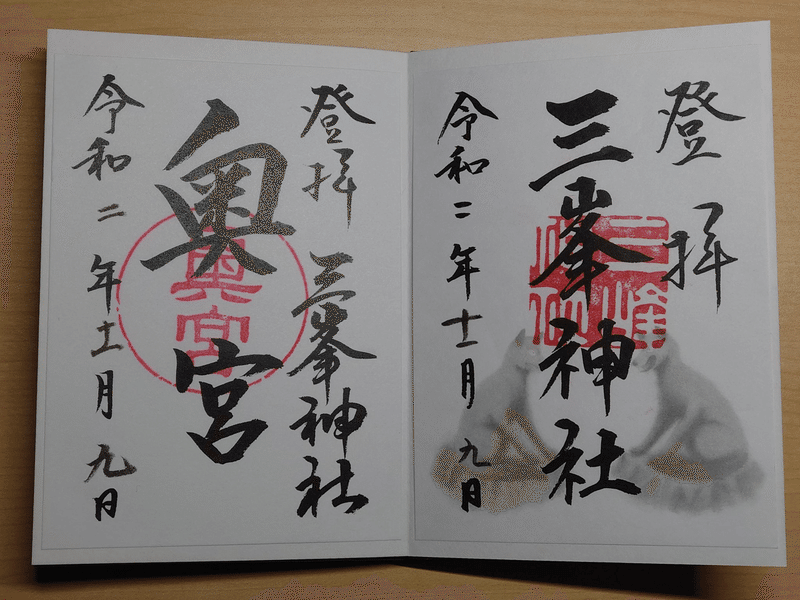 登拝
三峯神社
令和二年十一月九日
登拝 三峯神社
奥宮
奥宮
令和二年十一月九日